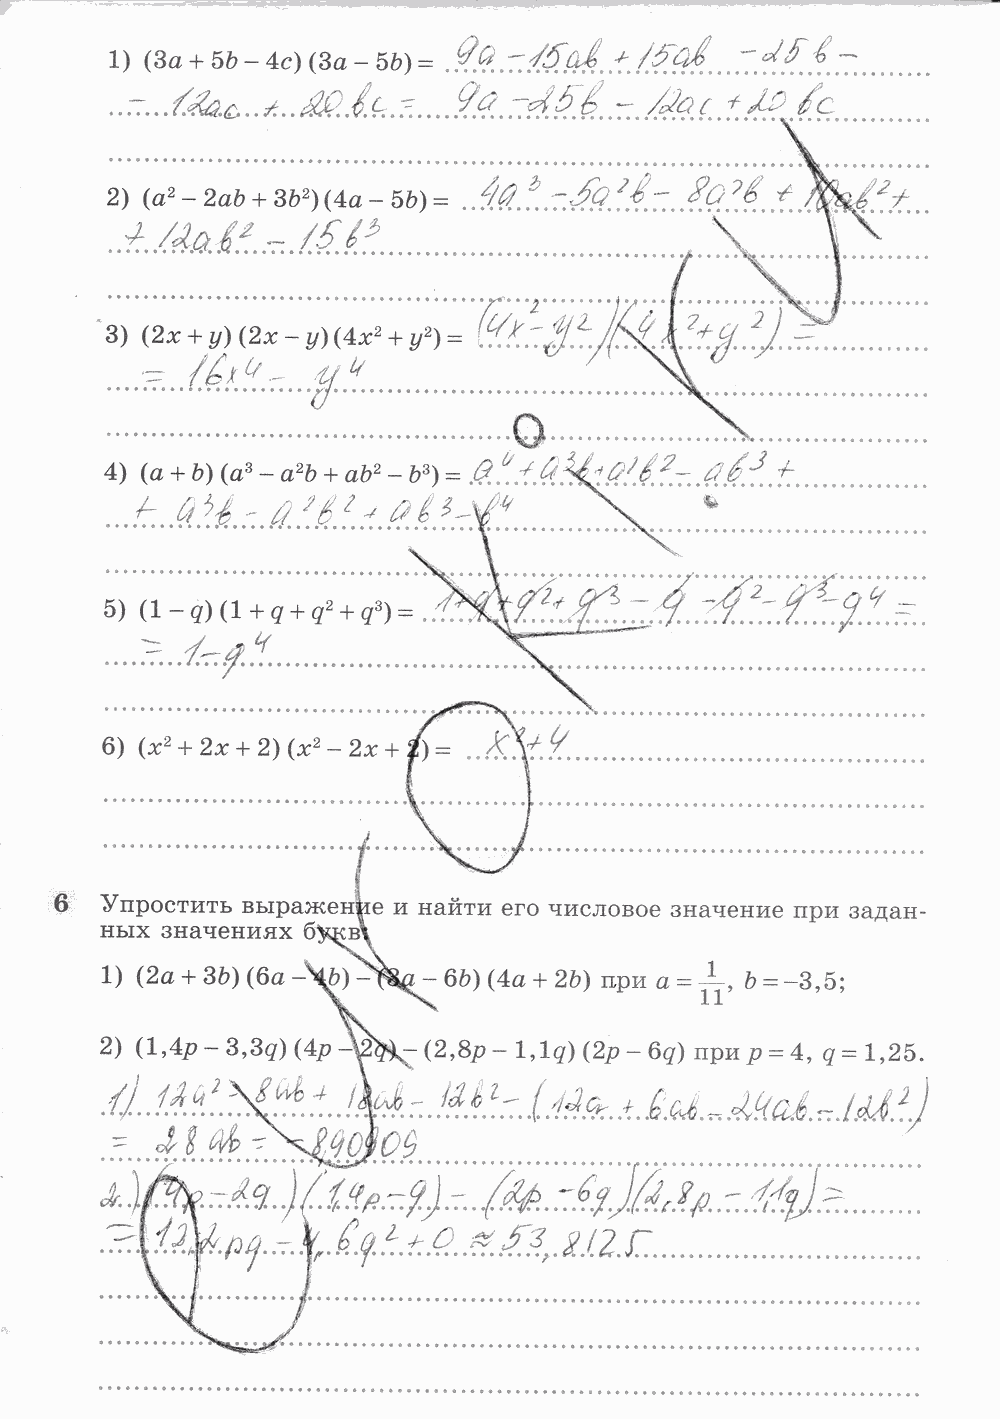 1) (3a + 5b − 4c)(3a − 5b) = 9a − 15ab + 15ab − 25b −
− 12ac + 20bc = 9a − 25b − 12ac + 20bc
2) (a² − 2ab + 3b²)(4a − 5b) = 4a³ − 5a²b − 8a²b + 10ab² +
+ 12ab² − 15b³
3) (2x + y)(2x − y)(4x² + y²) = (4x² − y²)(4x² + y²) =
= 16x⁴ − y⁴
4) (a + b)(a³ − a²b + ab² − b³) = a⁴ + a³b + a²b² − ab³ +
+ a³b − a²b² + ab³ − b⁴
5) (1 − q)(1 + q + q² + q³) = 1 + q + q² + q³ − q − q² − q³ − q⁴ =
= 1 − q⁴
6) (x² + 2x + 2)(x² − 2x + 2) = x² + 4
6 Упростить выражение и найти его числовое значение при задан-
ных значениях букв:
1) (2a + 3b)(6a − 4b) − (3a − 6b)(4a + 2b) при a = 1/11, b = −3,5;
2) (1,4p − 3,3q)(4p − 2q) − (2,8p − 1,1q)(2p − 6q) при p = 4, q = 1,25.
1) 12a² − 8ab + 18ab − 12b² − (12a + 6ab − 24ab − 12b²)
= 28ab = −8,90909
2) (4p − 2q)(1,4p − q) − (2p − 6q)(2,8p − 1,1q) =
= 13,2pq − 4,6q² + 0 ≈ 53,8125